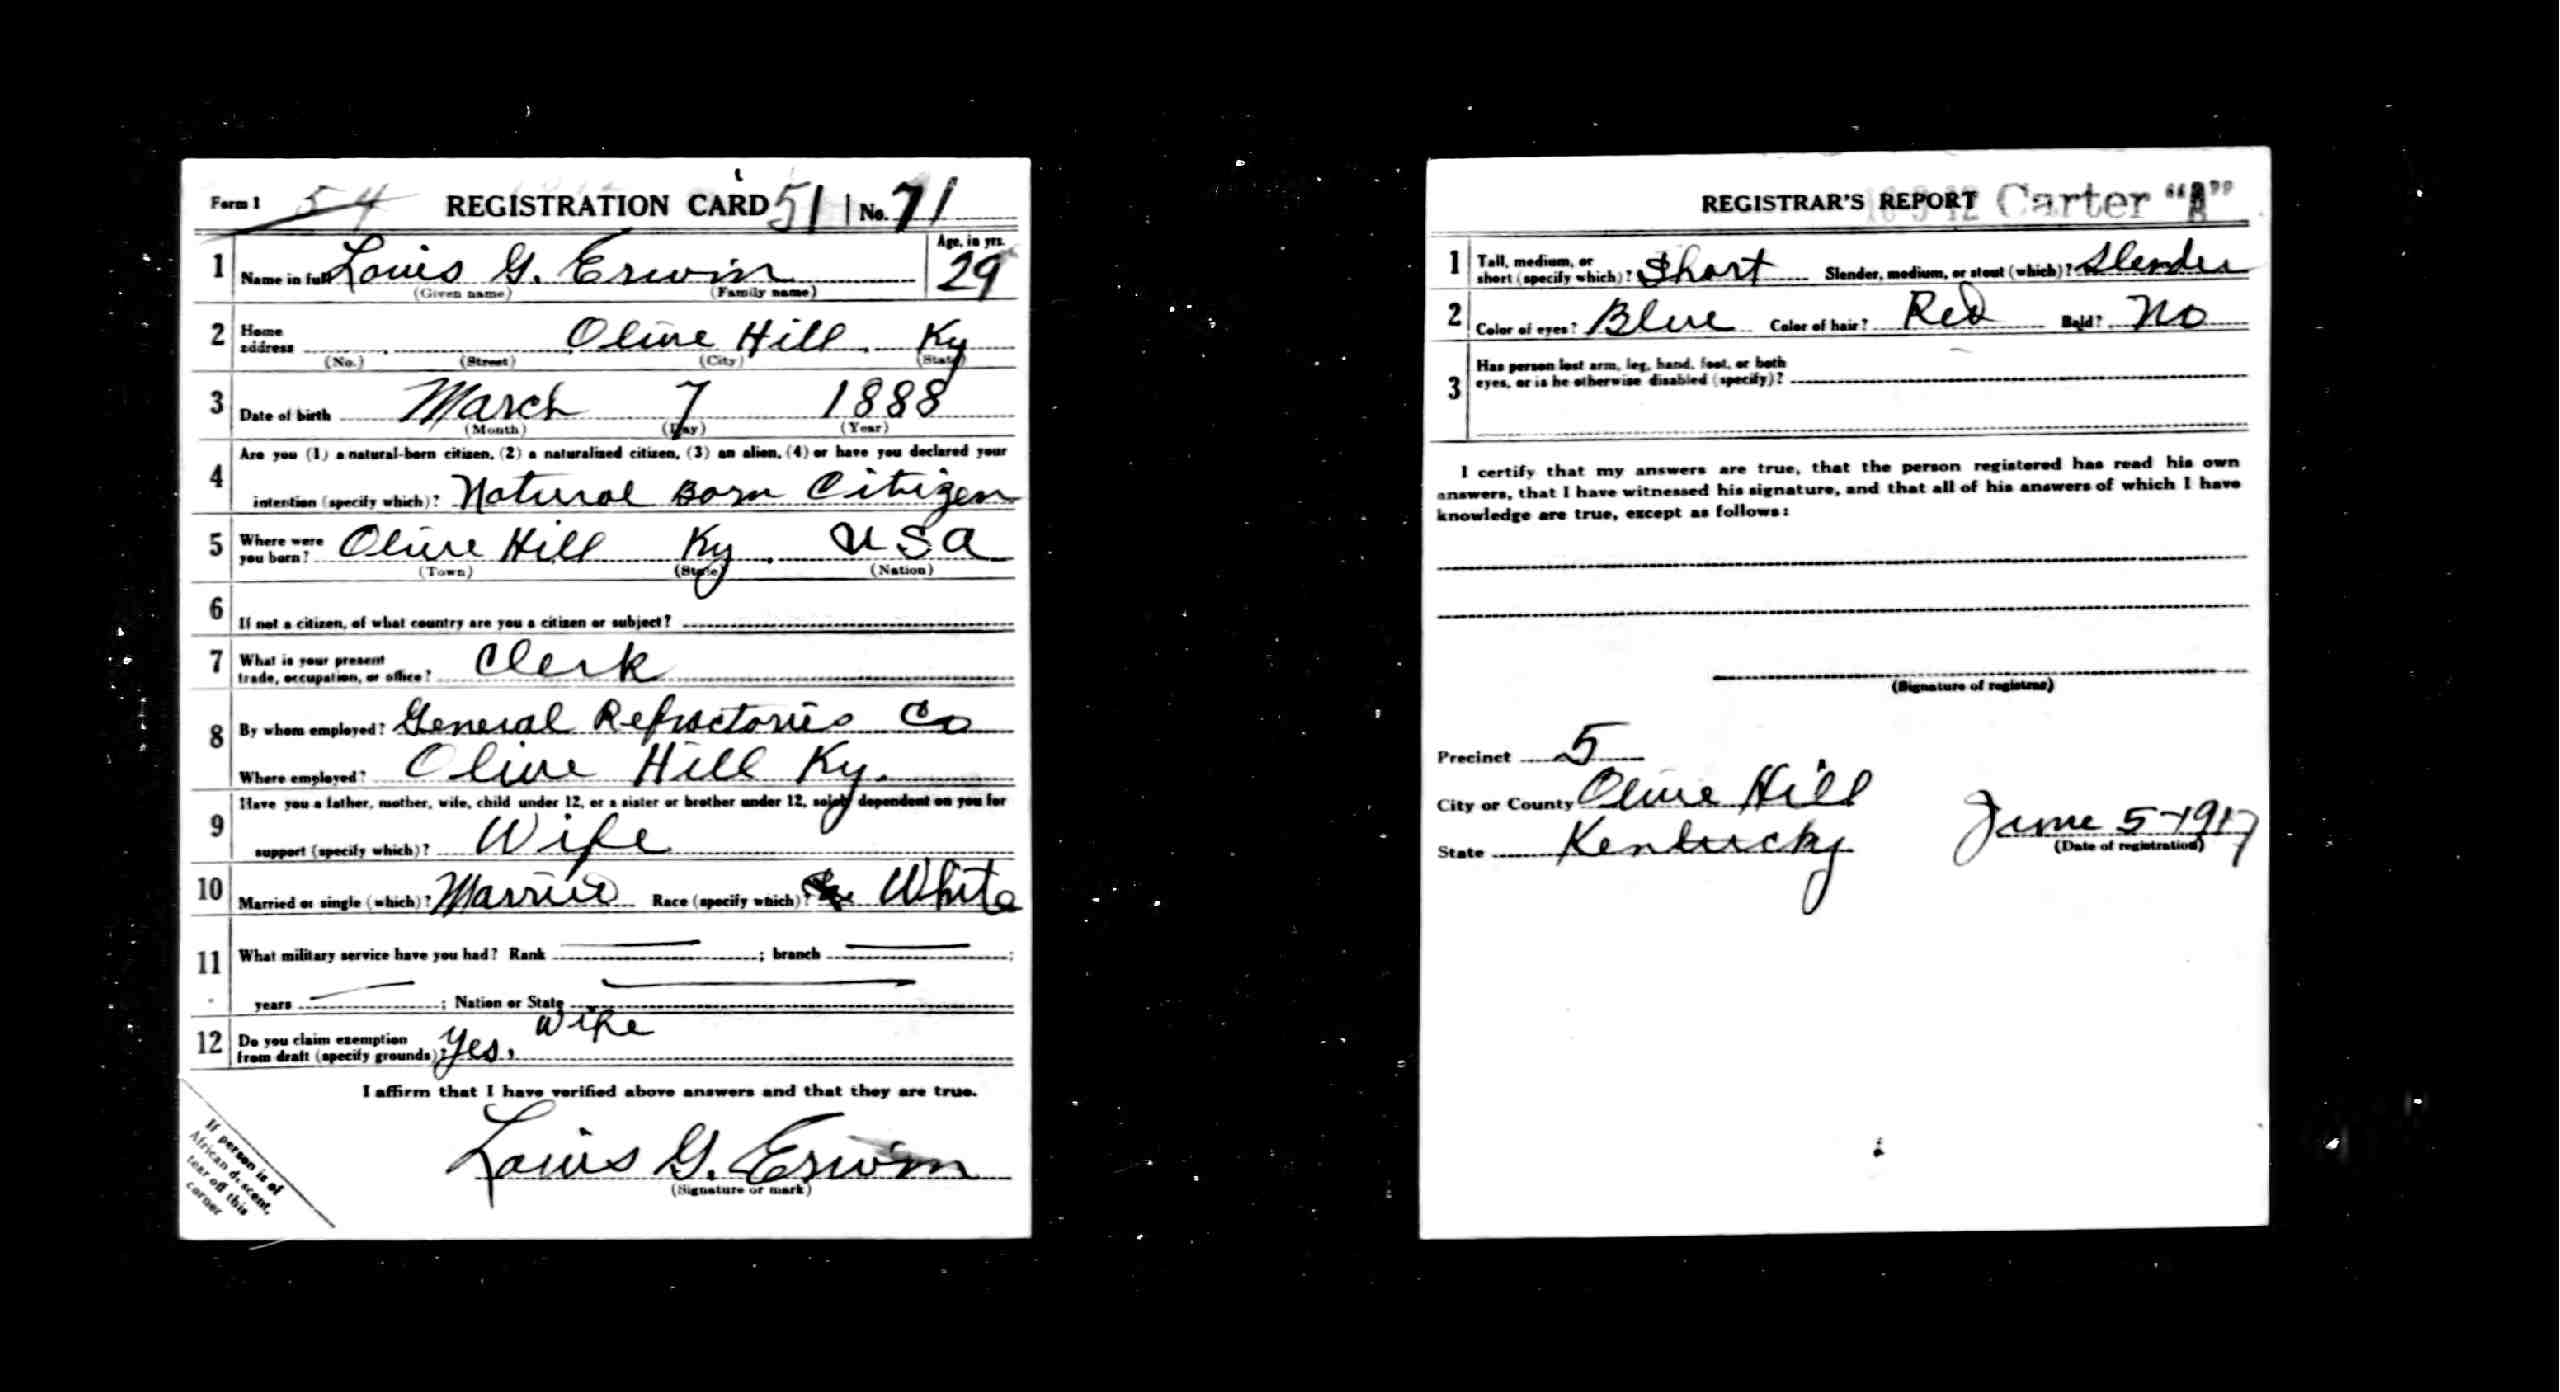 Form 1 54 REGISTRATION CARD 51 No. 71
1 Name in full Louis G. Erwin Age, in yrs. 29
(Given name) (Family name)
2 Home address Olive Hill Ky
(No.) (Street) (City) (State)
3 Date of birth March 7 1888
(Month) (Day) (Year)
4 Are you (1) a natural-born citizen, (2) a naturalized citizen, (3) an alien, (4) or have you declared your
intention (specify which)? Natural Born Citizen
5 Where were you born? Olive Hill Ky, USA
(Town) (State) (Nation)
6 If not a citizen, of what country are you a citizen or subject?
7 What is your present trade, occupation, or office? Clerk
8 By whom employed? General Refractories Co
Where employed? Olive Hill Ky.
9 Have you a father, mother, wife, child under 12, or a sister or brother under 12, solely dependent on you for
support (specify which)? Wife
10 Married or single (which)? Married Race (specify which)? White
11 What military service have you had? Rank ; branch ;
years ; Nation or State
12 Do you claim exemption from draft (specify grounds)? Yes, Wife
I affirm that I have verified above answers and that they are true.
Louis G. Erwin
(Signature or mark)
If person is of
African descent,
tear off this
corner
REGISTRAR'S REPORT Carter "A"
1 Tall, medium, or short (specify which)? Short Slender, medium, or stout (which)? Slender
2 Color of eyes? Blue Color of hair? Red Bald? No
3 Has person lost arm, leg, hand, foot, or both
eyes, or is he otherwise disabled (specify)?
I certify that my answers are true, that the person registered has read his own
answers, that I have witnessed his signature, and that all of his answers of which I have
knowledge are true, except as follows:
(Signature of registrar)
Precinct 5
City or County Olive Hill
State Kentucky June 5-1917
(Date of registration)